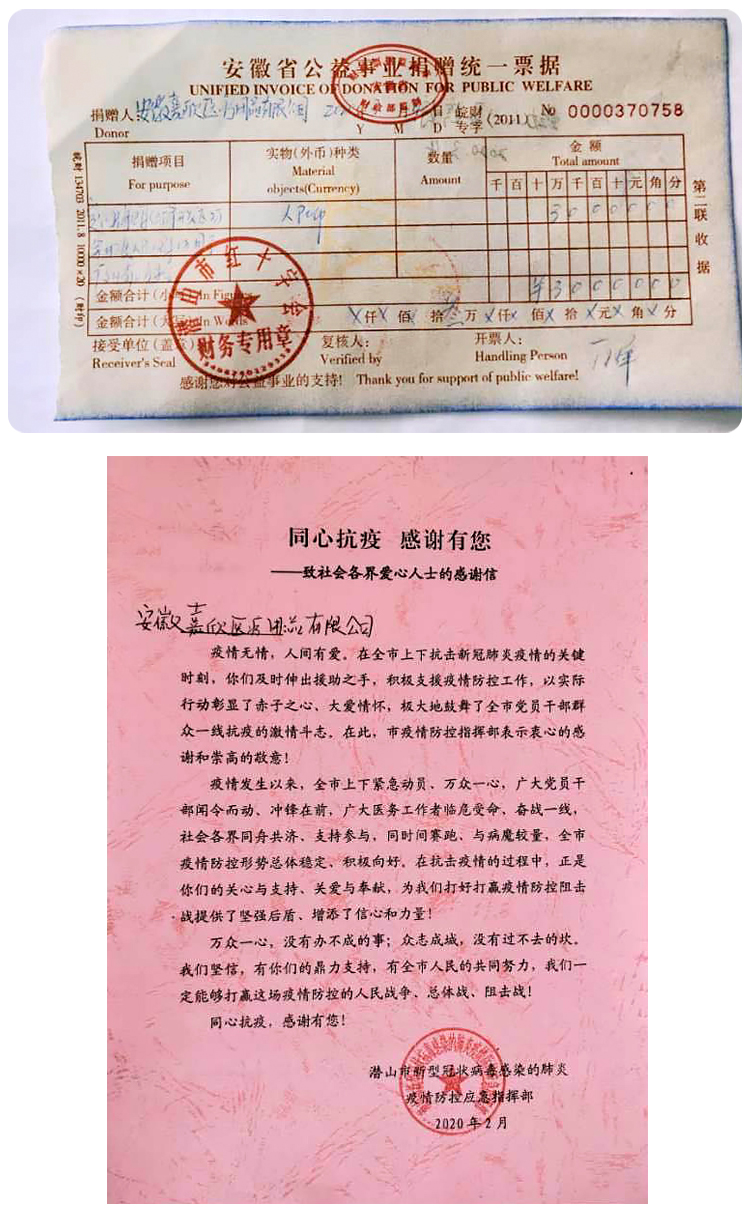 安徽省公益事业捐赠统一票据
UNIFIED INVOICE OF DONATION FOR PUBLIC WELFARE
捐赠人:安徽嘉欣医疗用品有限公司 月 日 皖财 专字 (2011) No 0000370758
Donor Y M D
捐赠项目 实物(外币)种类 数量 金额
For purpose Material objects(Currency) Amount Total amount
千 百 十 万 千 百 十 元 角 分
人民币 3 0 0 0 0 0 0
金额合计(小 In Fig ¥ 3 0 0 0 0 0 0
金额合计(大 In W 仟 佰 拾 叁 万 仟 佰 拾 元 角 分
接受单位(盖 复核人: 开票人:
Receiver's Seal Verified by Handling Person
感谢您对公益事业的支持! Thank you for support of public welfare!
第二联 收据
潜山市红十字会
财务专用章
同心抗疫 感谢有您
——致社会各界爱心人士的感谢信
安徽嘉欣医疗用品有限公司
疫情无情,人间有爱。在全市上下抗击新冠肺炎疫情的关键
时刻,你们及时伸出援助之手,积极支援疫情防控工作,以实际
行动彰显了赤子之心、大爱情怀,极大地鼓舞了全市党员干部群
众一线抗疫的激情斗志。在此,市疫情防控指挥部表示衷心的感
谢和崇高的敬意!
疫情发生以来,全市上下紧急动员、万众一心,广大党员干
部闻令而动、冲锋在前,广大医务工作者临危受命、奋战一线,
社会各界同舟共济、支持参与,同时间赛跑、与病魔较量,全市
疫情防控形势总体稳定、积极向好。在抗击疫情的过程中,正是
你们的关心与支持、关爱与奉献,为我们打好打赢疫情防控阻击
战提供了坚强后盾、增添了信心和力量!
万众一心,没有办不成的事;众志成城,没有过不去的坎。
我们坚信,有你们的鼎力支持,有全市人民的共同努力,我们一
定能够打赢这场疫情防控的人民战争、总体战、阻击战!
同心抗疫,感谢有您!
潜山市新型冠状病毒感染的肺炎
疫情防控应急指挥部
2020年2月